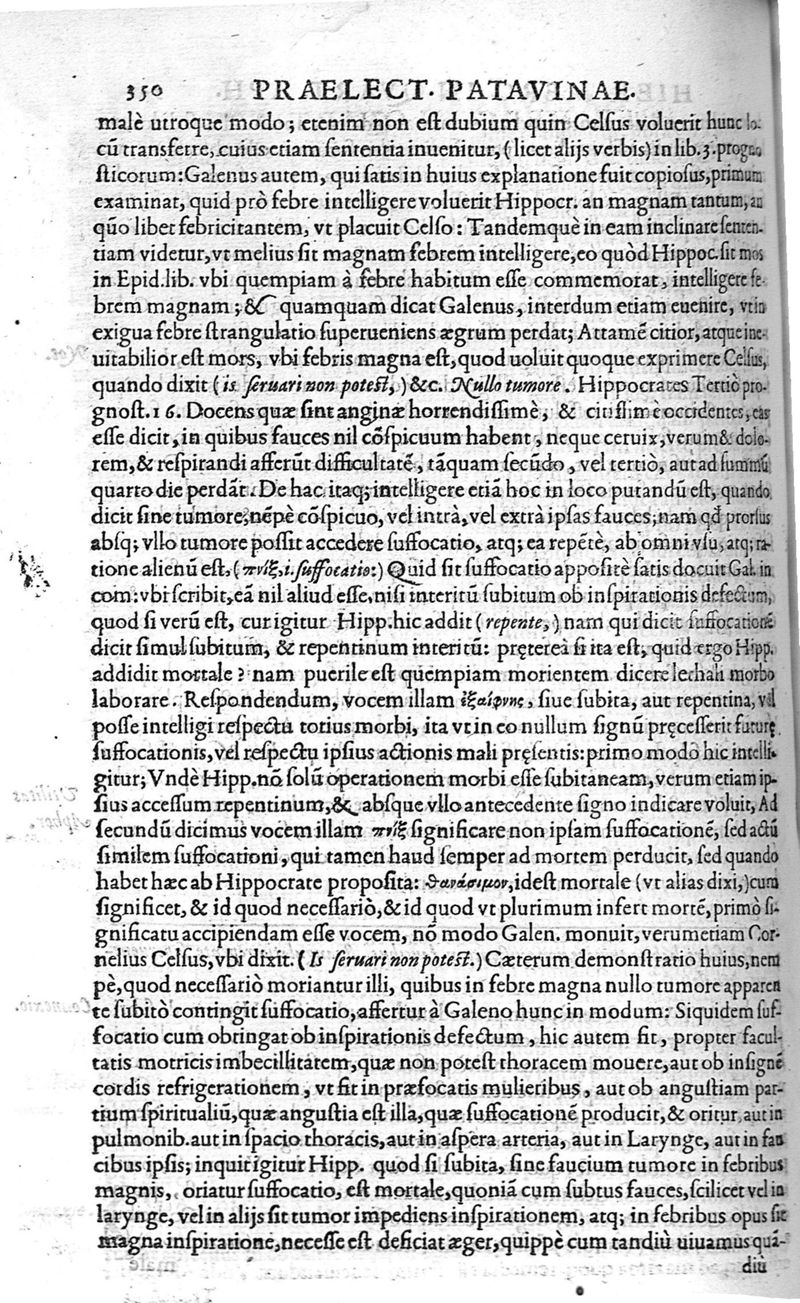 350 PRAELECT. PATAVINAE.
malè utroque modo; etenim non est dubium quin Celsus voluerit hunc lo-
cū transferre, cuius etiam sententia inuenitur, (licet alijs verbis) in lib. 3. progno
sticorum: Galenus autem, qui satis in huius explanatione fuit copiosus, primum
examinat, quid prò febre intelligere voluerit Hippocr. an magnam tantum, an
qūo libet febricitantem, vt placuit Celso: Tandemquè in eam inclinare senten-
tiam videtur, vt melius sit magnam febrem intelligere, eo quòd Hippoc. sit mos
in Epid. lib. vbi quempiam à febre habitum esse commemorat, intelligere fe-
brem magnam; & quamquam dicat Galenus, interdum etiam euenire, vt in
exigua febre strangulatio superueniens ægrum perdat; Attamē citior, atque ine-
uitabilior est mors, vbi febris magna est, quod uoluit quoque exprimere Celsus,
quando dixit (is seruari non potest,) &c. Nullo tumore. Hippocrates Tertiò pro-
gnost. 16. Docens quæ sint anginæ horrendissimè, & citissimè occidentes, eas
esse dicit, in quibus fauces nil cōspicuum habent, neque ceruix, verum & dolo-
rem, & respirandi afferūt difficultatē, tāquam secūdo, vel tertiò, aut ad summū
quarto die perdāt. De hac itaq; intelligere etiā hoc in loco putandū est, quando
dicit sine tumore, nēpè cōspicuo, vel intrà, vel extrà ipsas fauces; nam qd prorsus
absq; vllo tumore possit accedere suffocatio, atq; ea repētè, ab omni vsu, atq; ra-
tione alienū est, (πνίξ, i. suffocatio:) Quid sit suffocatio appositè satis docuit Gal. in
com: vbi scribit, eā nil aliud esse, nisi interitū subitum ob inspirationis defectum,
quod si verū est, cur igitur Hipp. hic addit (repente,) nam qui dicit suffocationē
dicit simul subitum, & repentinum interitū: prętereà si ita est, quid ærgo Hipp.
addidit mortale? nam puerile est quempiam morientem dicere lethali morbo
laborare. Respondendum, vocem illam ἐξαίφνης, siue subita, aut repentina, vel
posse intelligi respectu totius morbi, ita vt in eo nullum signū pręcesserit futurę
suffocationis, vel respectu ipsius actionis mali pręsentis: primo modo hic intelli-
gitur; Vndè Hipp. nō solū operationem morbi esse subitaneam, verum etiam ip-
sius accessum repentinum, & absque vllo antecedente signo indicare voluit, Ad
secundū dicimus vocem illam πνίξ significare non ipsam suffocationē, sed actū
similem suffocationi, qui tamen haud semper ad mortem perducit, sed quando
habet hæc ab Hippocrate proposita: θανάσιμον, idest mortale (vt alias dixi,) cum
significet, & id quod necessariò, & id quod vt plurimum infert mortē, primò si-
gnificatu accipiendam esse vocem, nō modo Galen. monuit, verumetiam Cor-
nelius Celsus, vbi dixit. (Is seruari non potest.) Cæterum demonstratio huius, nem
pè, quod necessariò moriantur illi, quibus in febre magna nullo tumore apparen
te subitò contingit suffocatio, affertur à Galeno hunc in modum: Siquidem suf-
focatio cum obtingat ob inspirationis defectum, hic autem fit, propter facul-
tatis motricis imbecillitatem, quæ non potest thoracem mouere, aut ob insignē
cordis refrigerationem, vt fit in præfocatis mulieribus, aut ob angustiam par-
tium spiritualiū, quæ angustia est illa, quæ suffocationē producit, & oritur aut in
pulmonib. aut in spacio thoracis, aut in aspera arteria, aut in Larynge, aut in fau
cibus ipsis; inquit igitur Hipp. quod si subita, sine faucium tumore in febribus
magnis, oriatur suffocatio, est mortale, quoniā cum subtus fauces, scilicet vel in
larynge, vel in alijs sit tumor impediens inspirationem, atq; in febribus opus sit
magna inspiratione, necesse est deficiat æger, quippè cum tandiù uiuamus quā-
diù